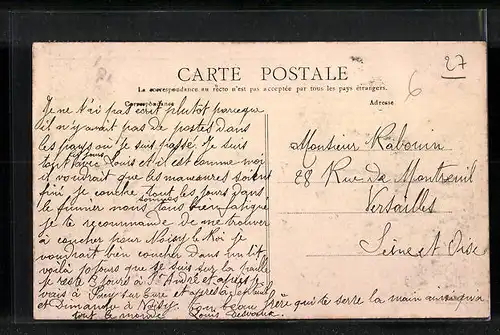 27
6
CARTE POSTALE
La correspondance au recto n'est pas acceptée par tous les pays étrangers.
Correspondance
Adresse
Je ne t'ai pas écrit plutôt parceque
il n'y avait pas de postes dans
les pays ou je suis passé. Je suis
toujours
tout avec Louis et il est comme moi
il voudrait que les maneuvres soient
fini je couche tout les jours dans
le fumier nous sommes tous bien fatigué
je te recommande de me trouver
a coucher pour Noisy le Roi je
voudrait bien coucher dans un lit
voilà jours que je suis sur la paille
je reste 3 jours à St André et après j'y
vais à sur Eure et après
et Dimanche à Noisy. Ton frère qui te serre la main ainsi qu'a
tout le monde Louis
Monsieur Rabouin
28 Rue de Montreuil
Versailles
Seine et Oise